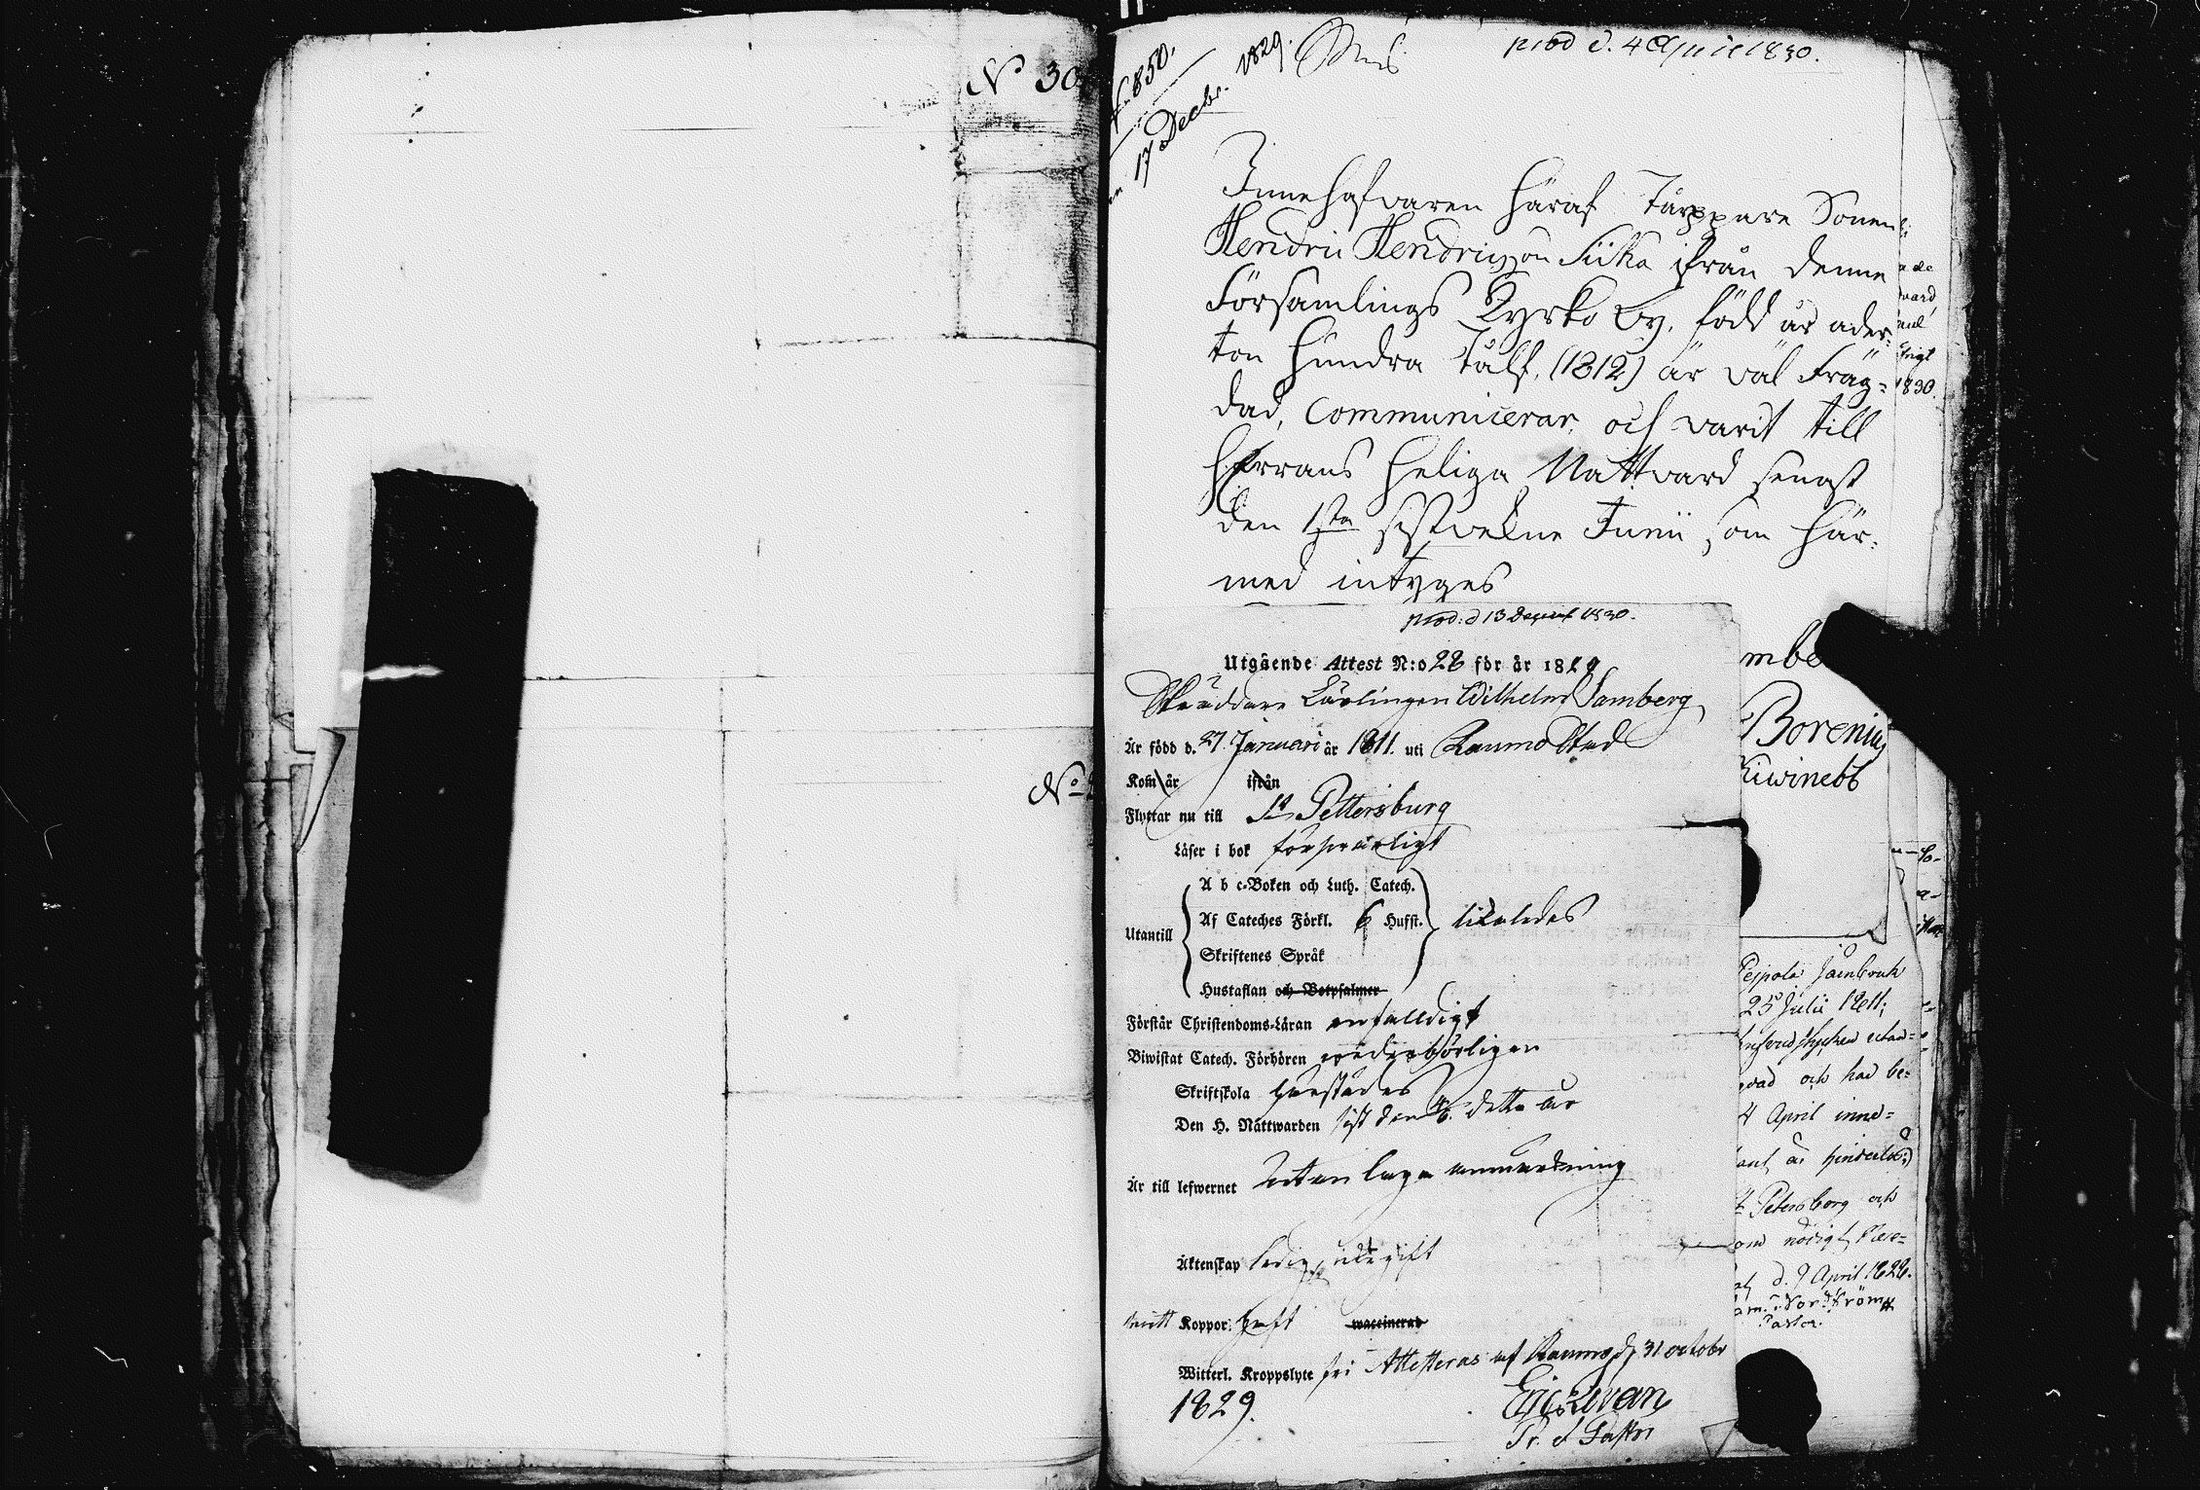 N 30
f. 850.
17 Decbr. 1829.
prod d. 4 April 1830.
Innehafvaren häraf Tårppare Sonen
Hendric Hendricsson Siika ifrån denne
Församlings Kyrko by, född år ader-
ton hundra Tålf, (1812) är väl Fräg=
dad, Communicerar, och varit till
Herrans heliga Nattvard senast
den 1sta sistvekne Junii som här=
med intyges
prod: d 13 1830.
Utgående Attest N:o 28 för år 1829
Skräddare Lärlingen Wilhelm Samberg
Är född d. 27. Januari år 1811. uti Raumo Stad
Kom år ifrån
Flyttar nu till St Pettersburg
Läser i bok försvarligt
A b c-Boken och Luth. Catech.
Utantill Af Cateches Förkl. 6 Hufst. likaledes
Skriftenes Språk
Hustaflan och Botpsalmer
Förstår Christendoms-Läran enfalldigt
Biwistat Catech. Förhören wederbörligen
Skriftskola
Den H. Nattwarden sist den detta år
Är till lefwernet utan laga anmärkning
Äktenskap ledig, icke gift
Koppor: haft vaccinerad
Witterl. Kroppslyte fri Attesteras af Raumo d. 31 octobr
1829.
Eric Levan
Pr. Past
mbe
Borenius
Kiwinebb
ade
vard
1830.
No
25 Julii 1811;
vad och har be=
4 April inne=
ant är hinderlös;
Petersborg och
om nödigt,
d. 9 April 1828.
Nordström
Pastor.